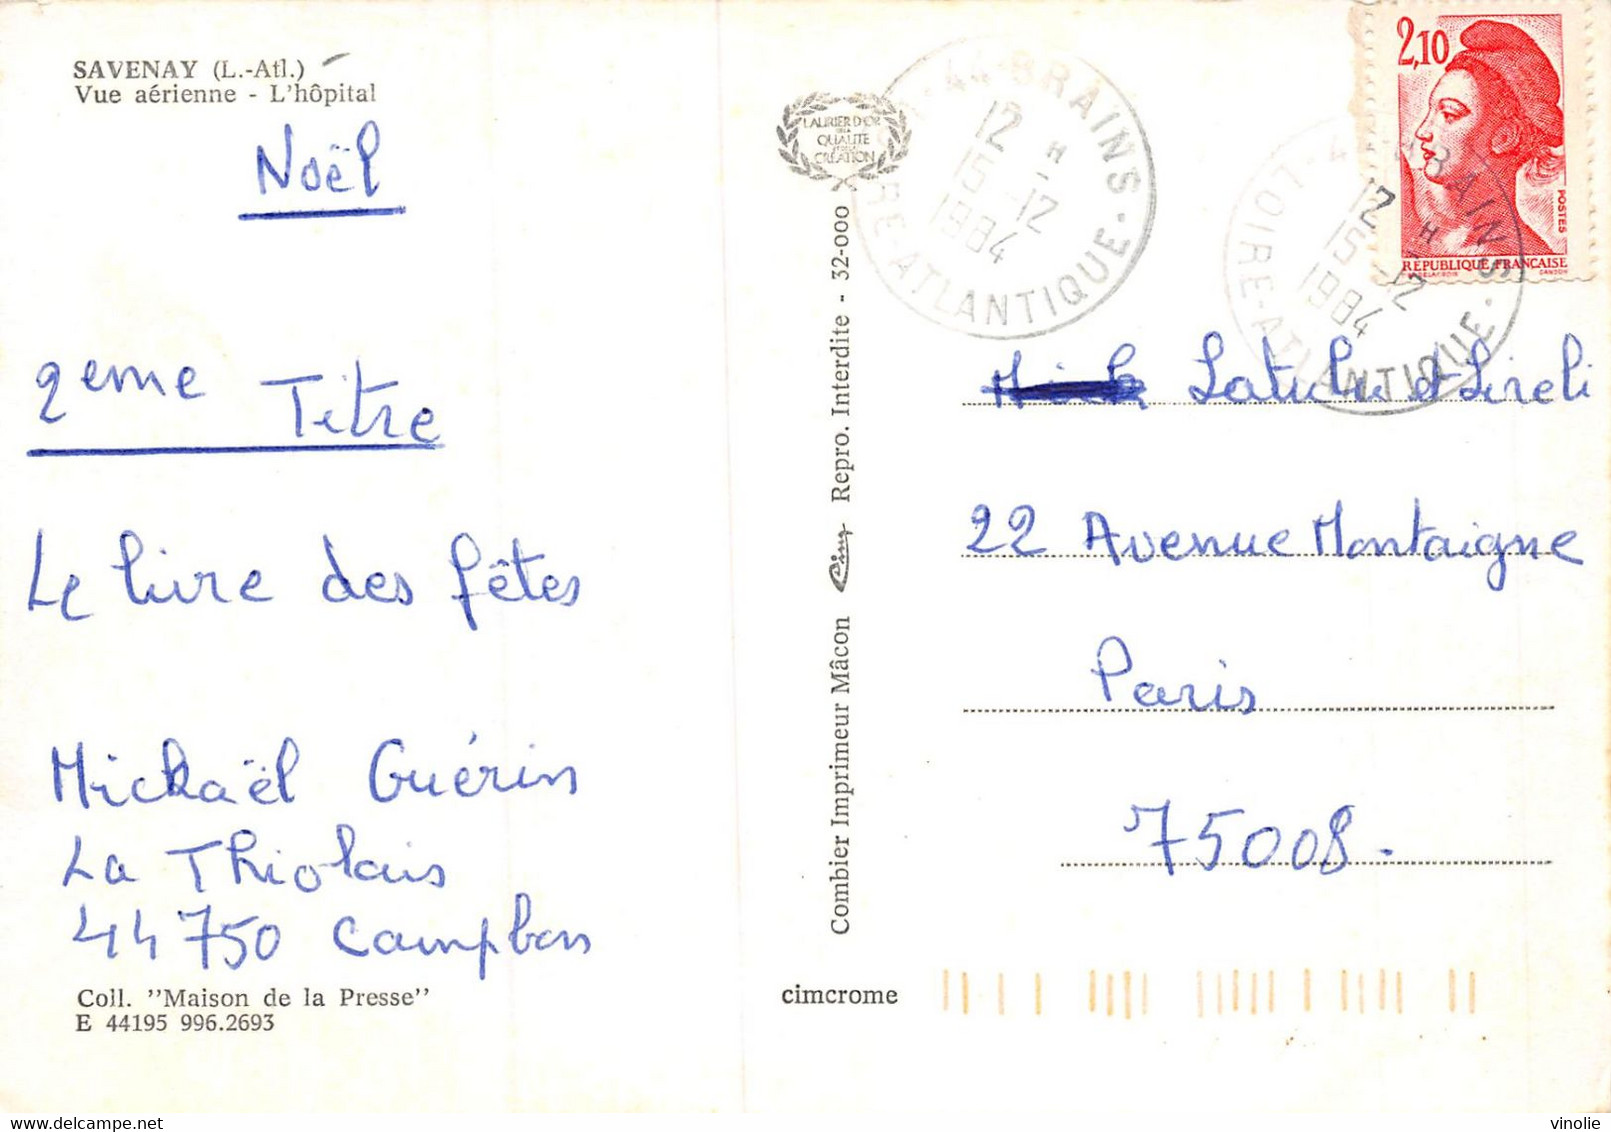 SAVENAY (L.-Atl.)
Vue aérienne - L'hôpital
Noël
2eme Titre
Le livre des fêtes
Mickaël Guérin
La Thiolais
44750 Campbon
Coll. "Maison de la Presse"
E 44195 996.2693
LAURIER D'OR
DE LA
QUALITE
CRÉATION
Combier Imprimeur Mâcon Cim Repro. Interdite - 32-000
cimcrome
44-BRAINS
12 H
15-12
1984
RE-ATLANTIQUE
BRAINS
12 H
15-12
1984
LOIRE-ATLANTIQUE
2,10
POSTES
RÉPUBLIQUE FRANÇAISE
GANDON
Latulu et Lireli
22 Avenue Montaigne
Paris
75008.
vinolie